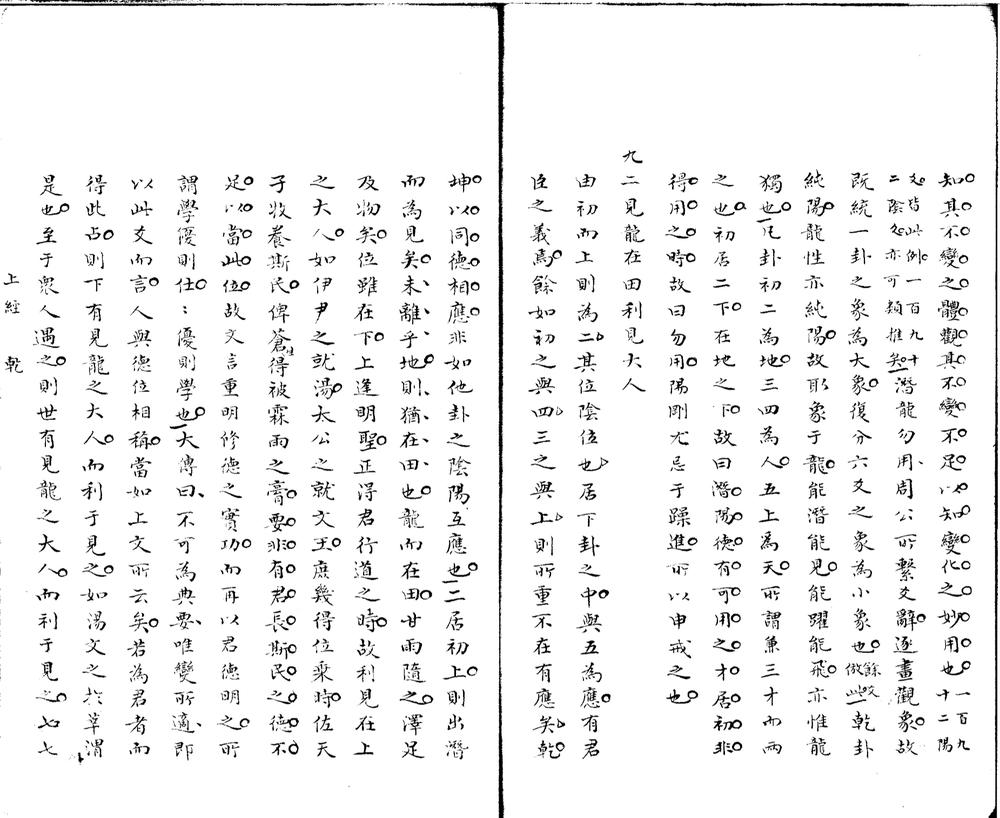 知其不變之體觀其不變不足以知變化之妙用也一百九十二陽
爻皆此例一百九十二陰爻亦可類推矣潛龍勿用周公所繫爻辭逐畫觀象故
既統一卦之象為大象復分六爻之象為小象也餘爻倣此乾卦
純陽龍性亦純陽故取象于龍能潛能見能躍能飛亦惟龍
獨也凡卦初二為地三四為人五上為天所謂兼三才而兩
之也初居二下在地之下故曰潛陽德有可用之才居初非
得用之時故曰勿用陽剛尤忌于躁進所以申戒之也
九二見龍在田利見大人
由初而上則為二其位陰位也居下卦之中與五為應有君
臣之義焉餘如初之與四三之與上則所重不在有應矣乾
坤以同德相應非如他卦之陰陽互應也二居初上則出潛
而為見矣未離乎地則猶在田也龍而在田甘雨隨之澤足
及物矣位雖在下上逢明聖正得君行道之時故利見在上
之大人如伊尹之就湯太公之就文王庶幾得位乘時佐天
子牧養斯民俾蒼生得被霖雨之膏要非有君長斯民之德不
足以當此位故文言重明修德之實功而再以君德明之所
謂學優則仕：優則學也大傳曰不可為典要唯變所適即
以此爻而言人與德位相稱當如上文所云矣若為君者而
得此占則下有見龍之大人而利于見之如湯文之於莘渭
是也至于眾人遇之則世有見龍之大人而利于見之七七
上經 乾